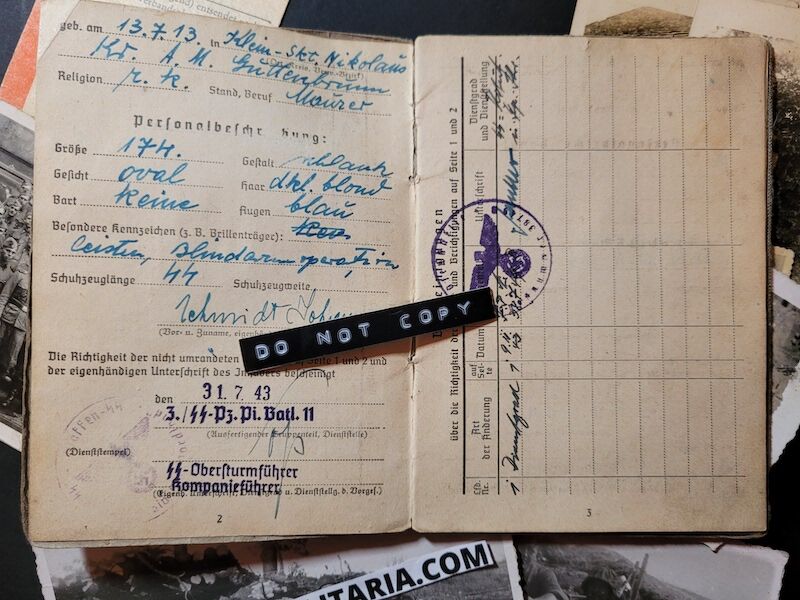 geb. am 13.7.13 in Klein-Skt. Nikolaus
Kr. A. M. Guttenbrunn
(Ort, Kreis, Verw.-Bezirk)
Religion r. k. Stand, Beruf Maurer
Personalbeschreibung:
Größe 174. Gestalt schlank
Gesicht oval Haar dkl. blond
Bart keine Augen blau
Besondere Kennzeichen (z. B. Brillenträger):
Leisten, Blinddarmoperation,
Schuhzeuglänge 44 Schuhzeugweite
Schmidt
(Vor- u. Zuname,
DO NOT COPY
Die Richtigkeit der nicht umrandeten Seite 1 und 2
und der eigenhändigen Unterschrift des Inhabers bescheinigt
den 31. 7. 43
3./SS-Pz. Pi. Batl. 11
(Ausfertigender Truppenteil, Dienststelle)
Waffen-SS
(Dienststempel)
SS-Obersturmführer
Kompanieführer
(Eigenh. Unterschrift, Dienstgrad u. Dienststellg. d. Vorges.)
2
über die Richtigkeit der und Berichtigungen auf Seite 1 und 2
Lfd. Nr.
Art der Änderung
auf Seite
Datum
Unterschrift
Dienstgrad und Dienststellung
1 Dienstgrad 1
3
ITARIA.COM